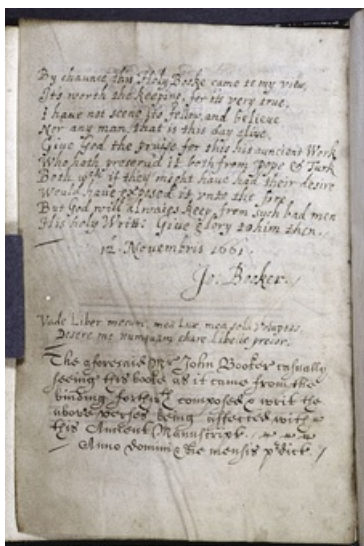 By chaunce this Holy Booke came to my view,
Its worth the keeping, for its very true.
I have not seene his fellow, and believe
Nor any man, that is this day alive.
Give God the praise for this his auncient Work
Who hath preserv'd it both from Pope & Turk
Both wch if they might have had their desire
Would have exposed it unto the fire
But God will alwaies keep from such bad men
His holy Writt: Give glory to him then.
12. Novembris 1661.
Jo. Booker.
Vade Liber mecum, mea Lux, mea sola Voluptas,
Desere me numquam, chare Libelle precor.
The aforesaid Mr John Booker casually
seeing this booke as it came from the
binding forthwt composed & writ the
above verses being affected with
this Ancient Manuscript.
Anno domini die mensis prdict.